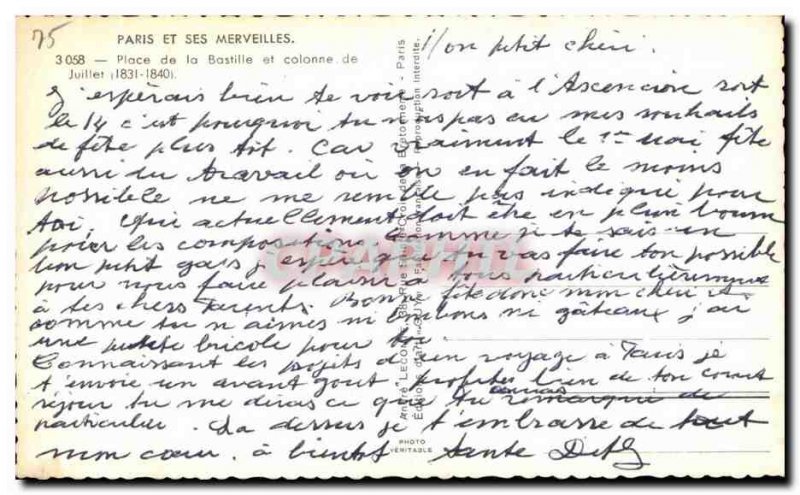 75
PARIS ET SES MERVEILLES.
3058 — Place de la Bastille et colonne de
Juillet (1831-1840).
Mon ptit chéri.
J'espérais bien te voir soit à l'Ascencion soit
le 14 c'est pourquoi tu n'as pas eu mes souhaits
de fête plus tôt. Car vraiment le 1er mai fête
aussi du travail où on en fait le moins
possible ne me semble pas indiqué pour
toi, qui actuellement doit être en plein boum
pour les compositions. Comme je te sais un
bon petit gars j'espère que tu vas faire ton possible
pour nous faire plaisir à tous particulièrement
à tes chers Parents. Bonne fête donc mon chéri et
comme tu n'aimes ni bonbons ni gâteaux j'ai
une petite bricole pour toi.
Connaissant les projets d'un voyage à Paris je
t'envoie un avant gout profites bien de ton court
séjour tu me diras ce que tu auras remarqué de
particulier. La dessus je t'embrasse de tout
mon cœur. à bientôt
André LECONTE
Paris
Reproduction Interdite.
PHOTO
VÉRITABLE